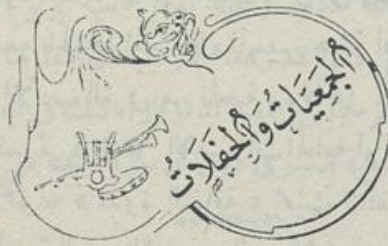 الجَمْعِيَاتُ وَالحَفَلَاتُ